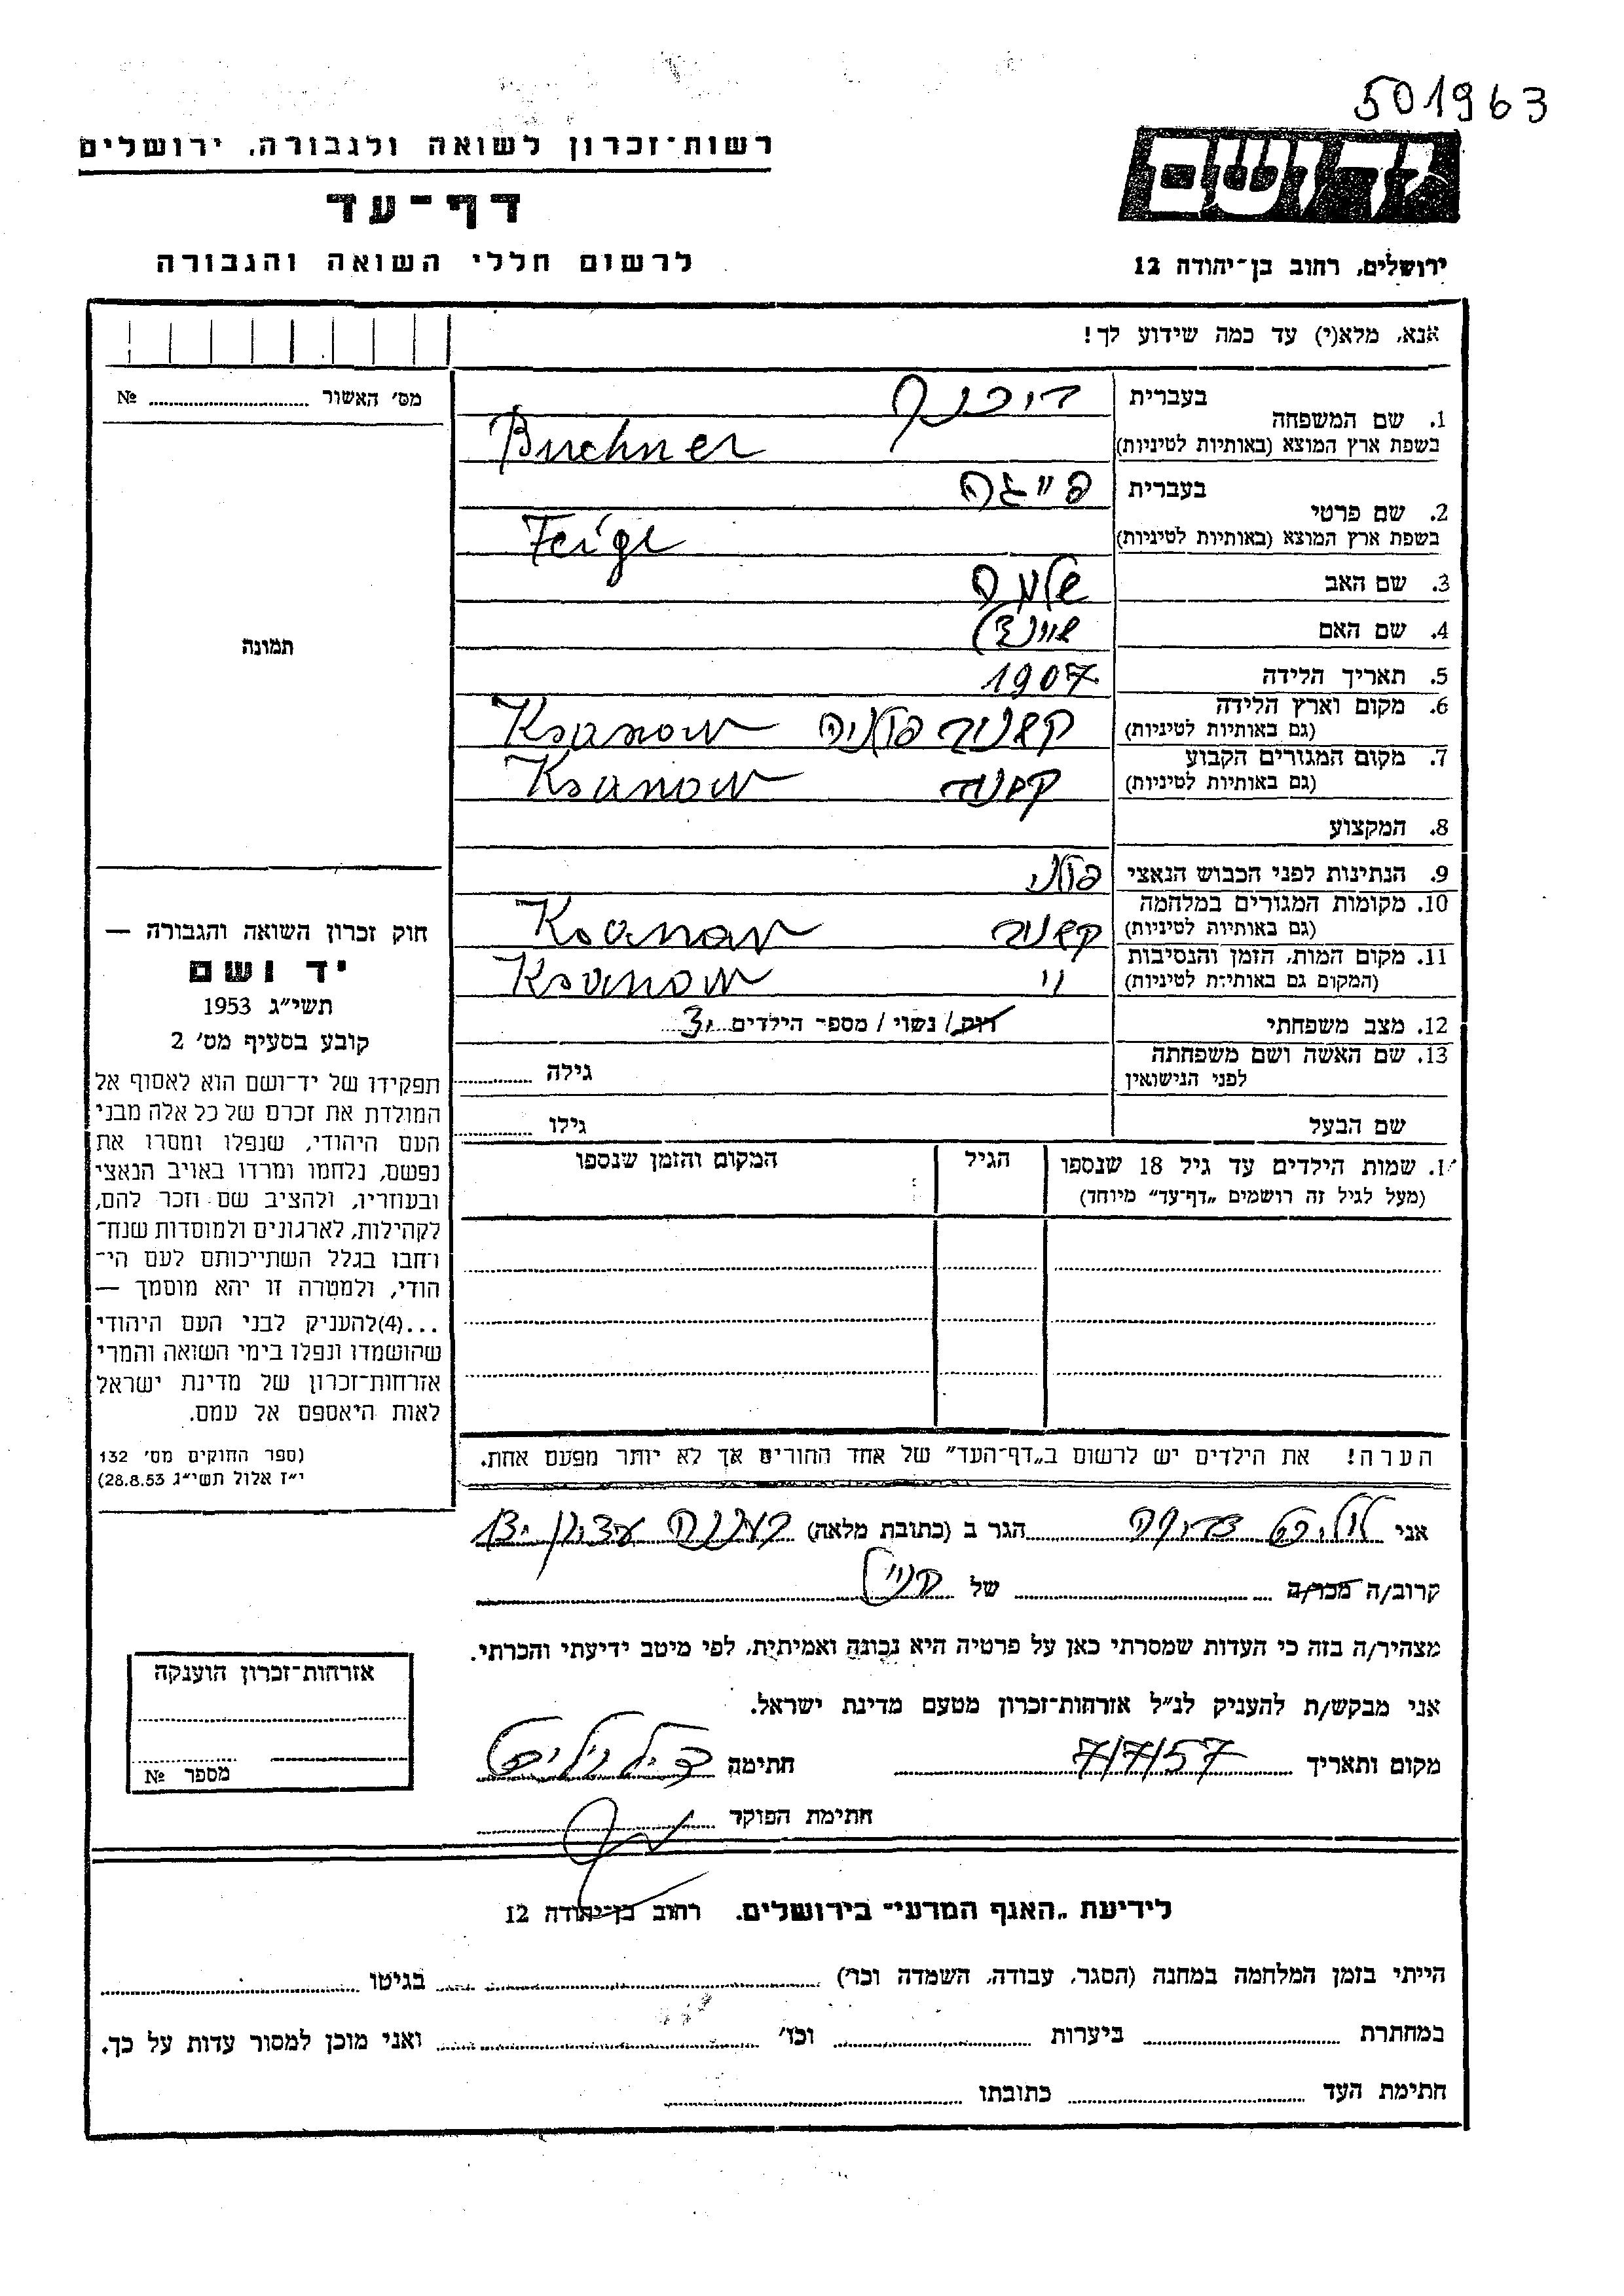 501963
רשות־זכרון לשואה ולגבורה, ירושלים
דף־עד
לרשום חללי השואה והגבורה
יד ושם
ירושלים, רחוב בן־יהודה 12
אנא, מלא(י) עד כמה שידוע לך!
מס׳ האשור № ..........
תמונה
חוק זכרון השואה והגבורה —
יד ושם
תשי״ג 1953
קובע בסעיף מס׳ 2
תפקידו של יד־ושם הוא לאסוף אל
המולדת את זכרם של כל אלה מבני
העם היהודי, שנפלו ומסרו את
נפשם, נלחמו ומרדו באויב הנאצי
ובעוזריו, ולהציב שם וזכר להם,
לקהילות, לארגונים ולמוסדות שנח־
רחבו בגלל השתייכותם לעם הי־
הודי, ולמטרה זו יהא מוסמך —
...(4)להעניק לבני העם היהודי
שהושמדו ונפלו בימי השואה והמרי
אזרחות־זכרון של מדינת ישראל
לאות היאספם אל עמם.
(ספר החוקים מס׳ 132
י״ז אלול תשי״ג 28.8.53)
1. שם המשפחה
בעברית
בשפת ארץ המוצא (באותיות לטיניות) Buchner
2. שם פרטי
בעברית פייגה
בשפת ארץ המוצא (באותיות לטיניות) Feige
3. שם האב שלמה
4. שם האם
5. תאריך הלידה 1907
6. מקום וארץ הלידה קשנוב פולניה Ksanow
(גם באותיות לטיניות)
7. מקום המגורים הקבוע קשנוב Ksanow
(גם באותיות לטיניות)
8. המקצוע
9. הנתינות לפני הכבוש הנאצי פולני
10. מקומות המגורים במלחמה קשנוב Ksanow
(גם באותיות לטיניות)
11. מקום המות, הזמן והנסיבות ״ Ksanow
(המקום גם באותיות לטיניות)
12. מצב משפחתי רוק / נשוי / מספר הילדים 3
13. שם האשה ושם משפחתה גילה ..........
לפני הנישואין
שם הבעל גילו ..........
1. שמות הילדים עד גיל 18 שנספו הגיל המקום והזמן שנספו
(מעל לגיל זה רושמים „דף־עד״ מיוחד)
הערה! את הילדים יש לרשום ב„דף־העד״ של אחד ההורים אך לא יותר מפעם אחת.
אני הגר ב (כתובת מלאה)
קרוב/ה מכר/ה .......... של
מצהיר/ה בזה כי העדות שמסרתי כאן על פרטיה היא נכונה ואמיתית, לפי מיטב ידיעתי והכרתי.
אני מבקש/ת להעניק לנ״ל אזרחות־זכרון מטעם מדינת ישראל.
מקום ותאריך 7/7/57 חתימה
חתימת הפוקד
אזרחות־זכרון הוענקה
מספר №
לידיעת „האגף המדעי״ בירושלים, רחוב בן־יהודה 12
הייתי בזמן המלחמה במחנה (הסגר, עבודה, השמדה וכר׳) .......... בגיטו ..........
במחתרת .......... ביערות .......... וכו׳ .......... ואני מוכן למסור עדות על כך.
חתימת העד .......... כתובתו ..........